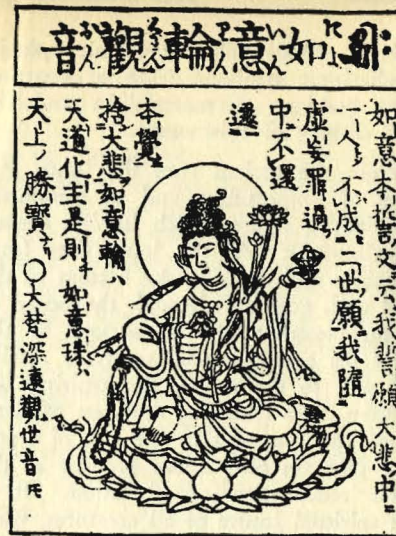 如意輪觀音
如意本誓文云我誓願大悲中ニ
一人不成二世願我隨
虚妄罪過
中不還
還
本覺
捨大悲如意輪ハ
天道化主是則チ如意珠ハ
天上ノ勝寶ナリ〇大梵深遠觀世音